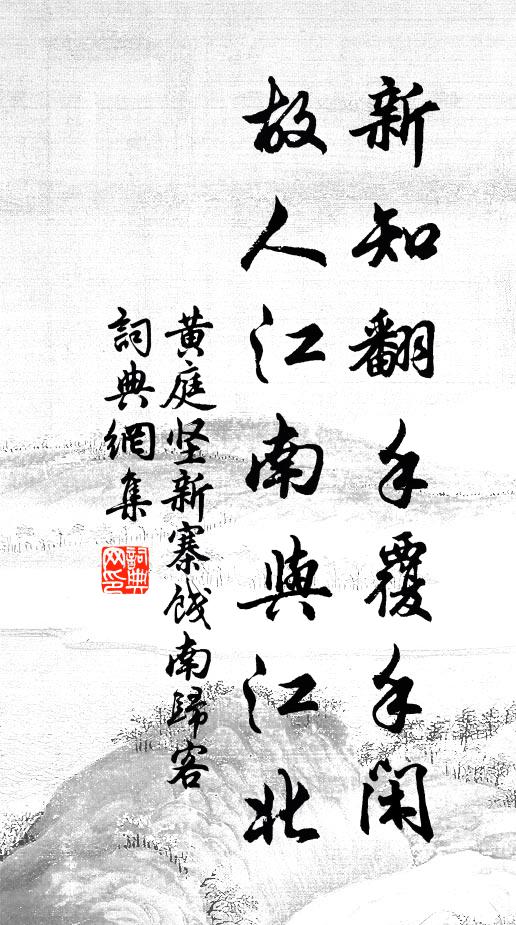 新知翻手覆手閑
故人江南與江北
黄庭坚新寨餞南歸客
詞典網集
詞典网印